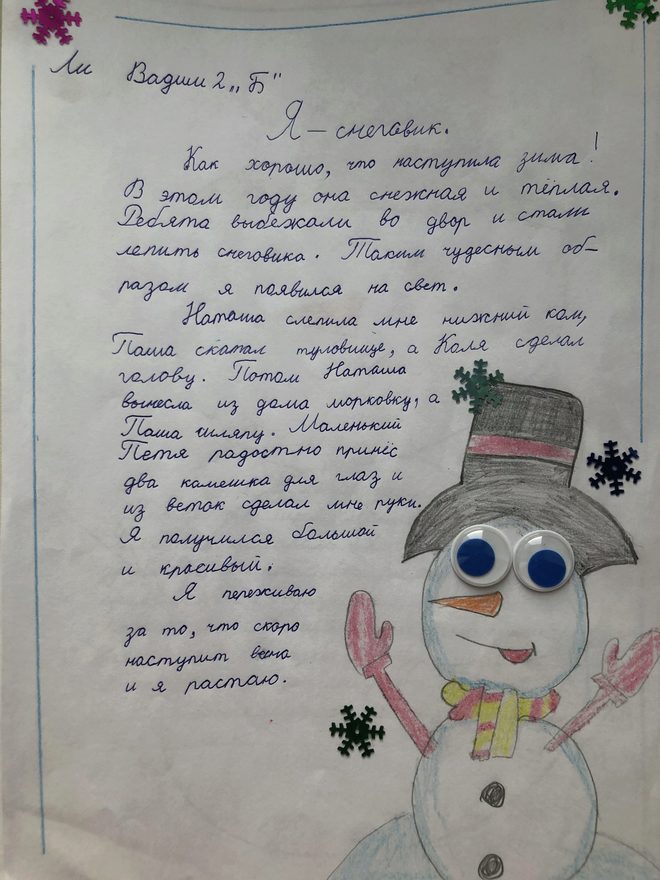 Ли Вадим 2 „Б"
Я – снеговик.
Как хорошо, что наступила зима!
В этом году она снежная и тёплая.
Ребята выбежали во двор и стали
лепить снеговика. Таким чудесным об-
разом я появился на свет.
Наташа слепила мне нижний ком,
Паша скатал туловище, а Коля сделал
голову. Потом Наташа
вынесла из дома морковку, а
Паша шляпу. Маленький
Петя радостно принёс
два камешка для глаз и
из веток сделал мне руки.
Я получился большой
и красивый.
Я переживаю
за то, что скоро
наступит весна
и я растаю.